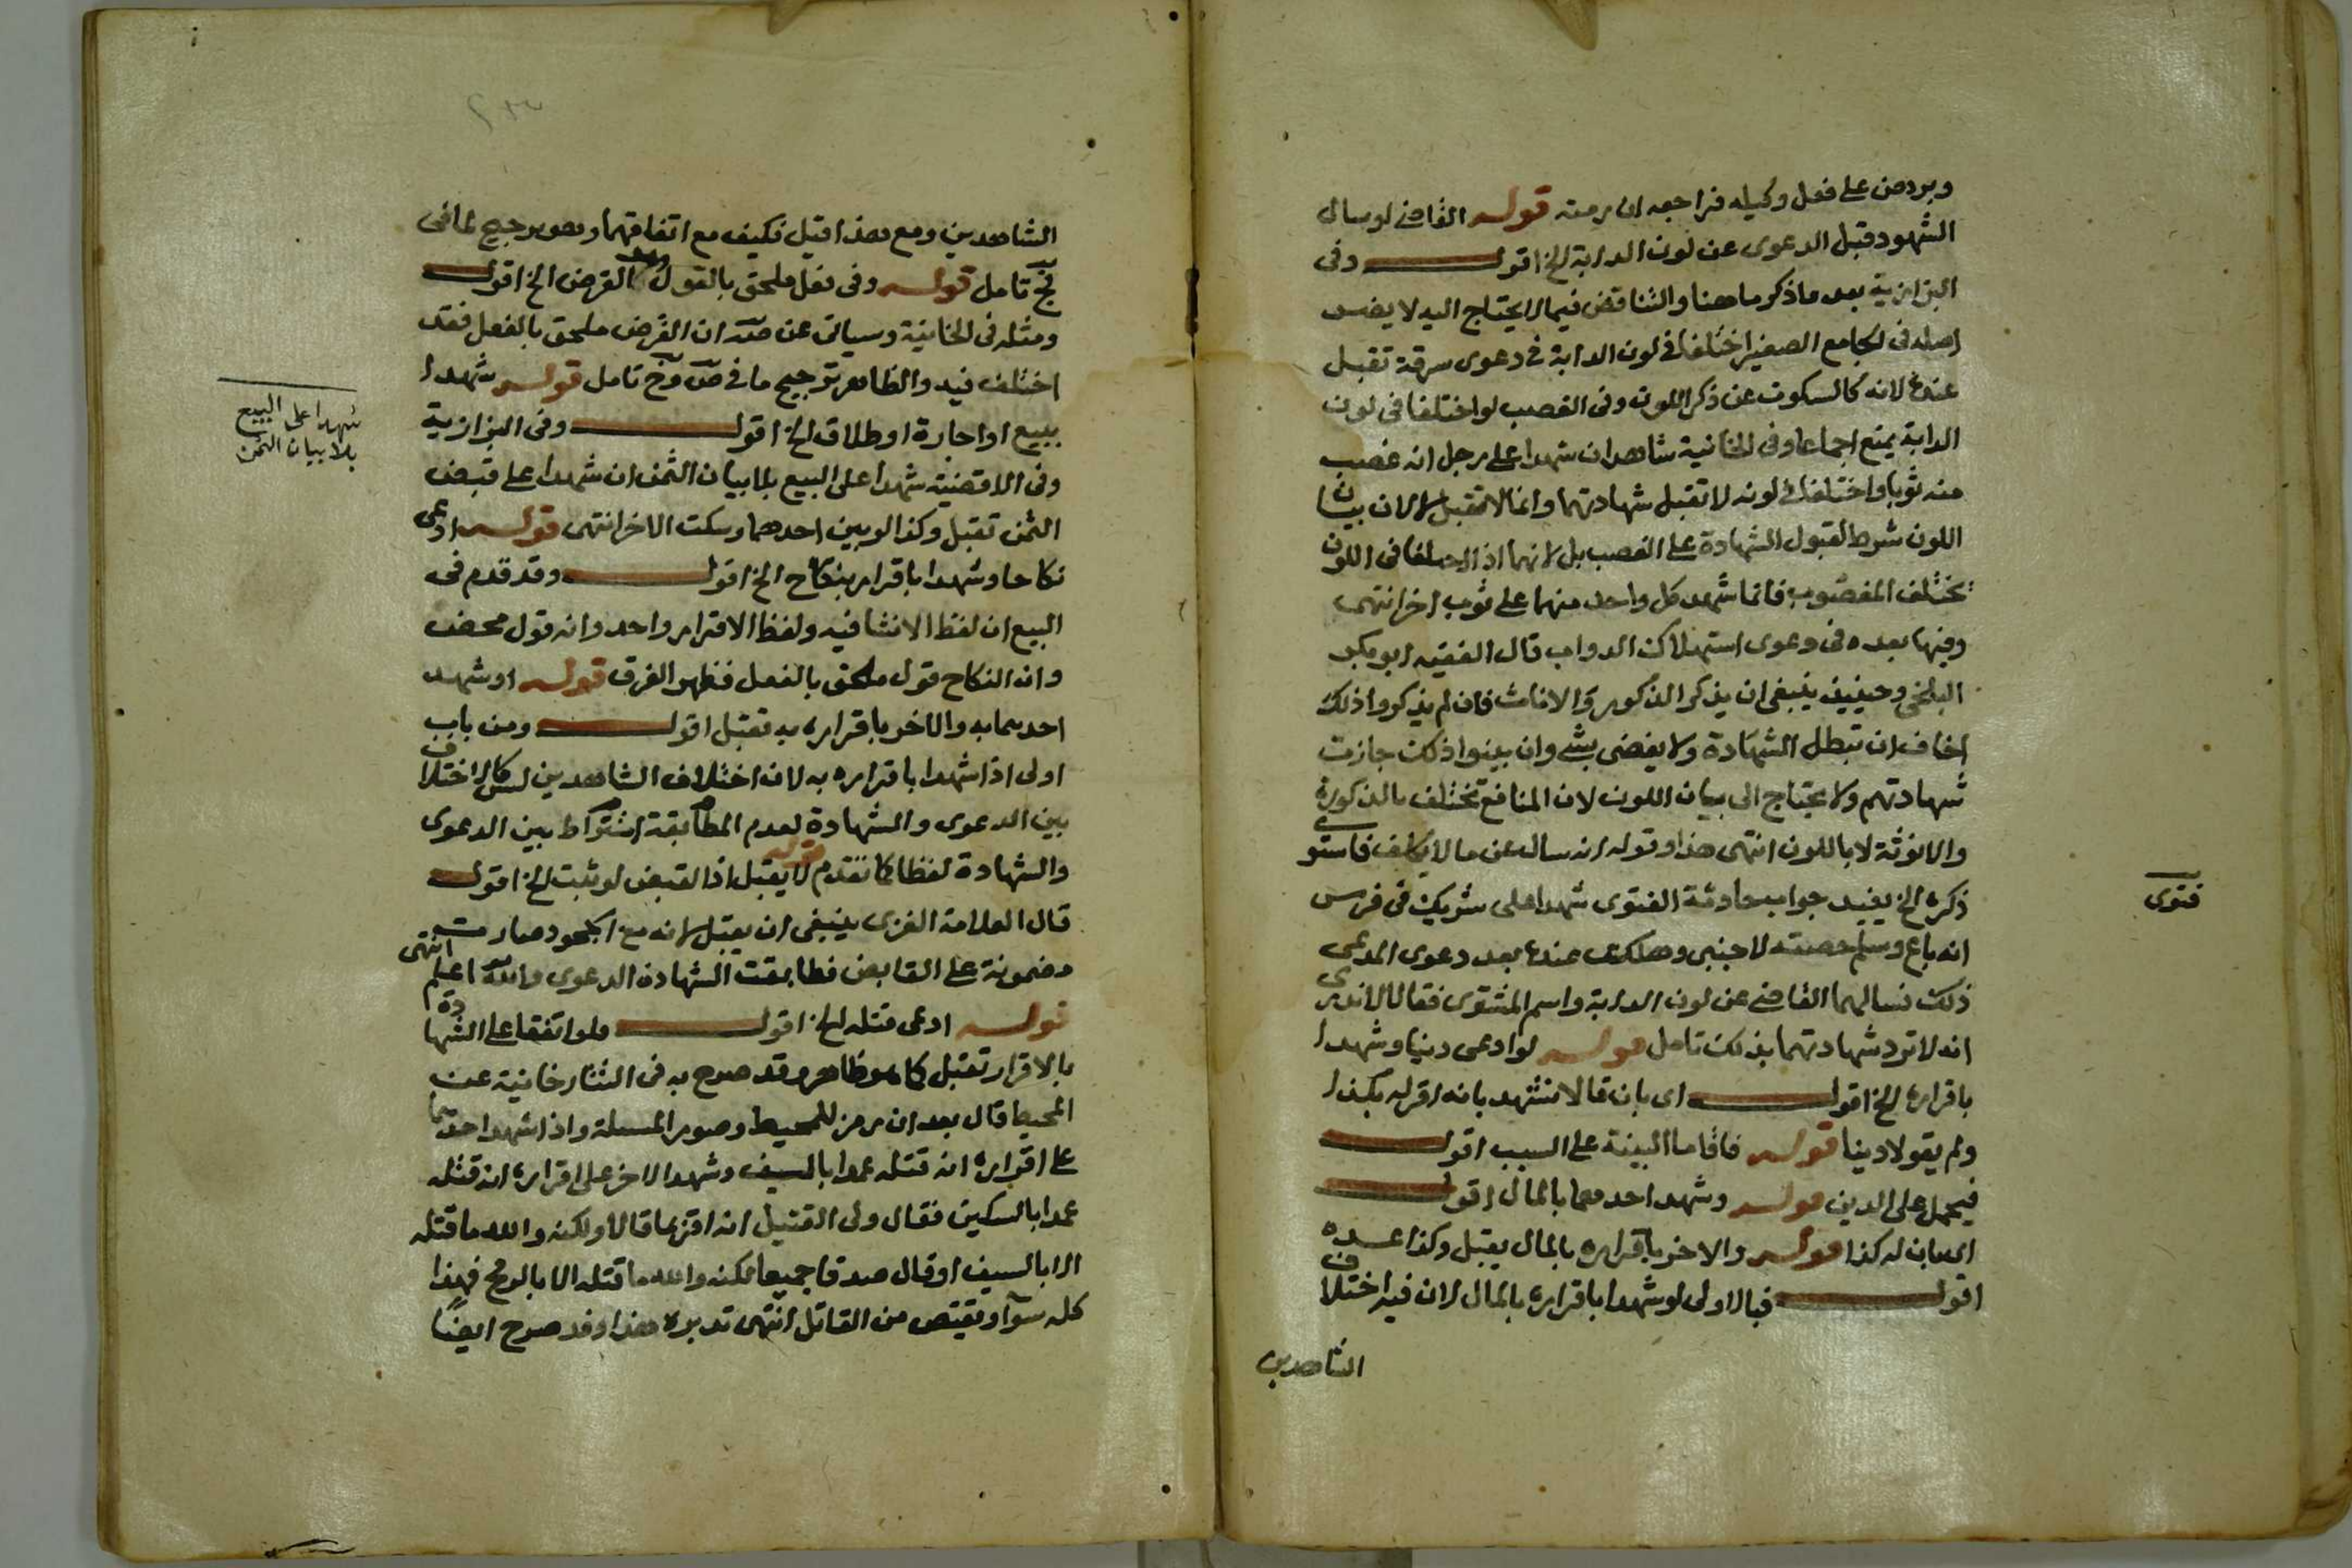 وبرهن على فعل وكيله فراجعه ان رمته قوله القاضي لو سال
الشهود قبل الدعوى عن لون الدابة الخ اقول وفى
البزازية بعد ما ذكر ما هنا والتناقض فيما لا يحتاج اليه لا يضر
اصله فى الجامع الصغير اختلفا في لون الدابة في دعوى سرقة تقبل
عنده لانه كالسكوت عن ذكر اللون وفى الغصب لو اختلفا فى لون
الدابة يمنع اجماعا وفى الخانية شاهدان شهدا على رجل انه غصب
منه ثوبا واختلفا في لونه لا تقبل شهادتهما وانما لا تقبل لا لان بيان
اللون شرط لقبول الشهادة على الغصب بل لانهما اذا اختلفا فى اللون
يختلف المغصوب فانما شهد كل واحد منهما على ثوب اخر انتهى
وفيها بعده فى دعوى استهلاك الدواب قال الفقيه ابو بكر
البلخى وحينئذ ينبغى ان يذكر الذكور والاناث فان لم يذكروا ذلك
اخاف ان تبطل الشهادة ولا يقضى بشي وان بينوا ذلك جازت
شهادتهم ولا يحتاج الى بيان اللون لان المنافع تختلف بالذكورة
والانوثة لا باللون انتهى هذا وقوله انه سال عن ما لا يكلف فاستوى
ذكره الخ يفيد جواب حادثة الفتوى شهدا على شريك فى فرس
انه باع وسلم حصته لاجنبى وهلكت عنده بعد دعوى المدعى
ذلك فسالهما القاضي عن لون الدابة واسم المشترى فقالا لا ندرى
انه لا ترد شهادتهما بذلك تامل قوله لو ادعى دينا وشهدا
باقراره الخ اقول اى بان قالا نشهد بانه اقر له بكذا
ولم يقولا دينا قوله فاقاما البينة على السبب اقول
فيحمل على الدين قوله وشهد احدهما بالمال اقول
اى بان له كذا قوله والاخر باقراره بالمال يقبل وكذا عنده
اقول فبالاولى لو شهدا باقراره بالمال لان فيه اختلاف
الشاهدين
فتوى
الشاهدين ومع هذا قيل فكيف مع اتفاقهما وهو ترجيح لما فى
نج تامل قوله وفى فعل ملحق بالقول وهو القرض الخ اقول
ومثله فى الخانية وسياتى عن صه ان القرض ملحق بالفعل فقد
اختلف فيه والظاهر ترجيح ما في صه وخ تامل قوله شهدا
ببيع او اجارة او طلاق الخ اقول وفى البزازية
وفى الاقضية شهدا على البيع بلا بيان الثمن ان شهدا على قبض
الثمن تقبل وكذا لو بين احدهما وسكت الاخر انتهى قوله ادعى
نكاحا وشهدا باقراره بنكاح الخ اقول وقد قدم فى
البيع ان لفظ الانشا فيه ولفظ الاقرار واحد وانه قول محض
وان النكاح قول ملحق بالفعل فظهر الفرق قوله او شهد
احدهما به والاخر باقراره به تقبل اقول ومن باب
اولى اذا شهدا باقراره به لان اختلاف الشاهدين ليس كالاختلاف
بين الدعوى والشهادة لعدم اشتراط المطابقة بين الدعوى
والشهادة لفظا كما تقدم قوله لا يقبل اذ القبض لو ثبت الخ اقول
قال العلامة الغزى ينبغى ان يقبل لانه مع الجحود صارت
مضمونة على القابض فطابقت الشهادة الدعوى والله اعلم انتهى
قوله ادعى قتله الخ اقول ولو اتفقا على الشهادة
بالاقرار تقبل كما هو ظاهر وقد صرح به فى التتارخانية عن
المحيط قال بعد ان رمز للمحيط وصور المسئلة واذا شهد احدهما
على اقراره انه قتله عمدا بالسيف وشهد الاخر على اقراره انه قتله
عمدا بالسكين فقال ولى القتيل انه اقر بما قالا ولكنه والله ما قتله
الا بالسيف او قال صدقا جميعا لكنه والله ما قتله الا بالرمح فهذا
كله سوآ ويقتص من القاتل انتهى تدبره هذا وقد صرح ايضًا
شهدا على البيع
بلا بيان الثمن